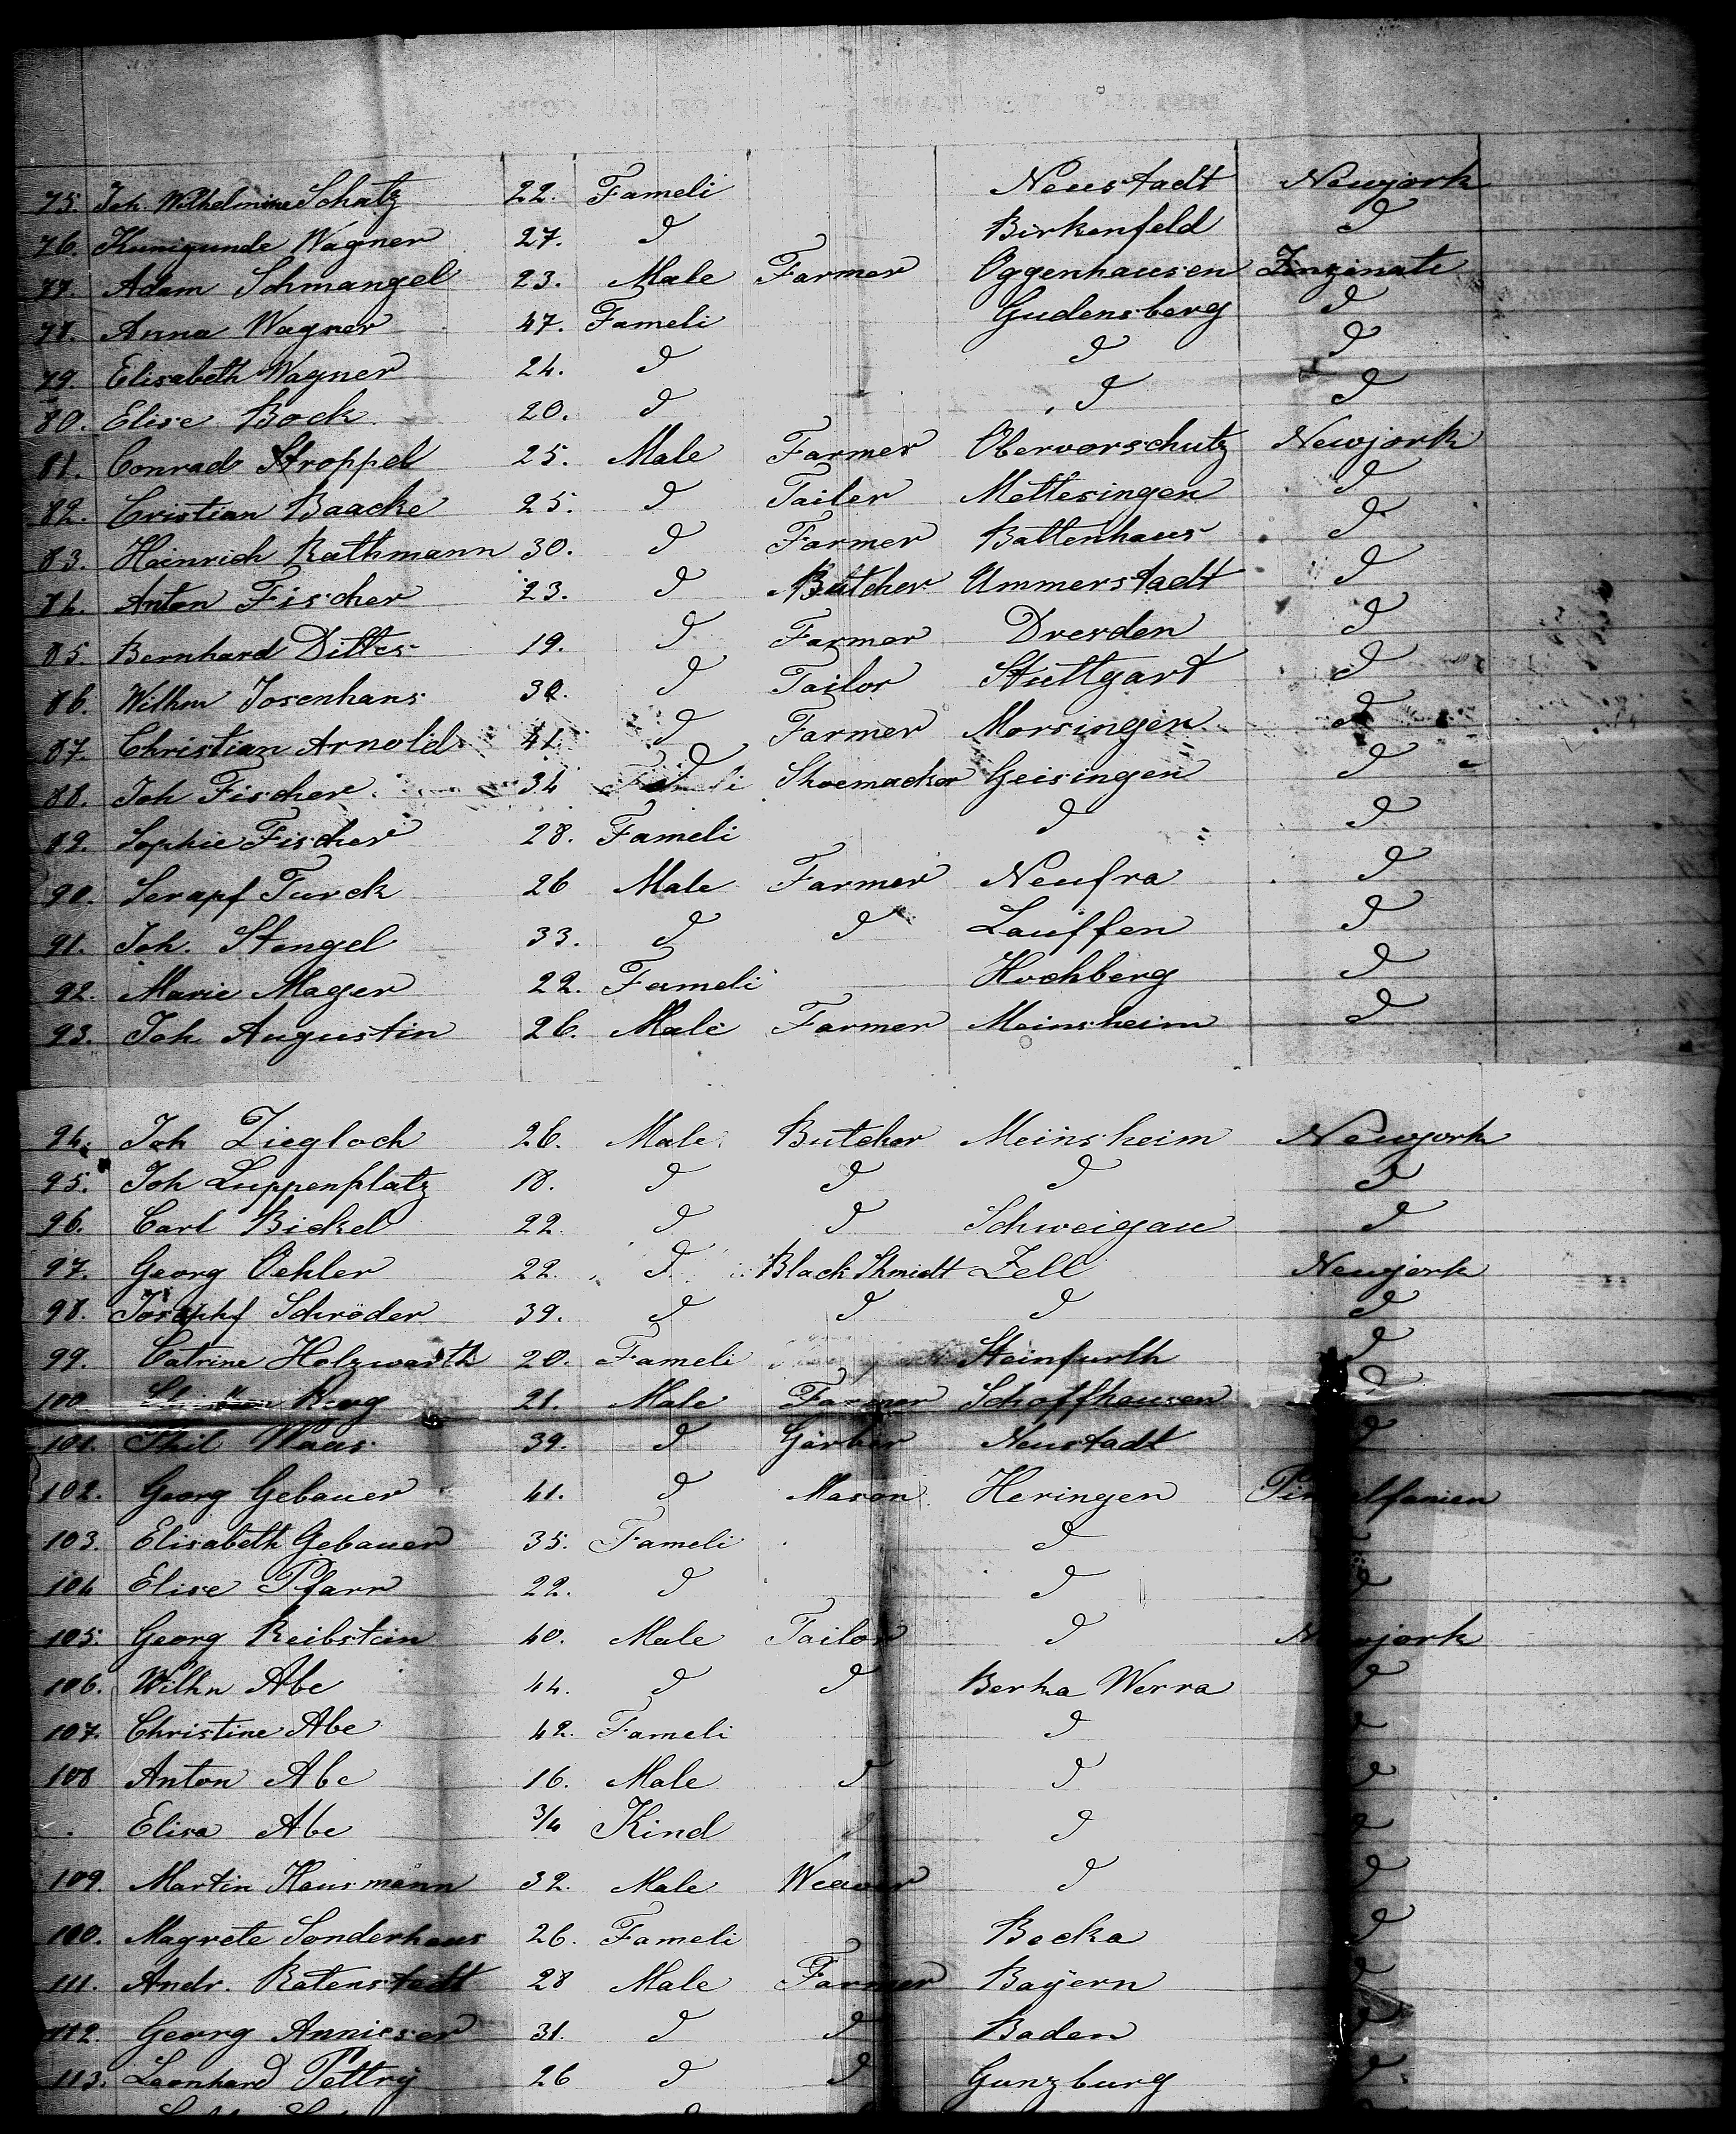 75. Joh. Wilhelmine Schatz 22. Fameli Neustadt Newjork
76. Kunigunde Wagner 27. d Birkenfeld d
77. Adam Schmangel 23. Male Farmer Oggenhausen Zinzinati
78. Anna Wagner 47. Fameli Gudensberg d
79. Elisabeth Wagner 24. d d d
80. Elise Bock 20. d d d
81. Conrad Stroppel 25. Male Farmer Obervorschutz Newjork
82. Cristian Baacke 25. d Tailer Mettesingen d
83. Heinrich Rathmann 30. d Farmer Battenhaus d
84. Anton Fischer 23. d Butcher Ummerstadt d
85. Bernhard Dittes 19. d Farmer Dresden d
86. Wilhm Josenhans 30. d Tailor Stuttgart d
87. Christian Arnold 41. d Farmer Morsingen d
88. Joh Fischer 34 d Shoemacker Geisingen d
89. Sophie Fischer 28. Fameli d d
90. Serapf Turck 26 Male Farmer Neufra d
91. Joh. Stengel 33. d d Lauffen d
92. Marie Mager 22. Fameli Hochberg d
93. Joh Augustin 26. Male Farmer Meinsheim d
94. Joh Ziegloch 26. Male Butcher Meinsheim Newjork
95. Joh Luppenplatz 18. d d d d
96. Carl Bickel 22. d d Schweigau d
97. Georg Oehler 22. d Black Shmidt Zell Newjork
98. Josephf Schröder 39. d d d d
99. Catrine Holzwarth 20. Fameli Steinfurth d
100 21. Male Farmer Schoffhausen d
101. Phil Maas 39. d Gärber Neustadt d
102. Georg Gebauer 41. d Mason Heringen
103. Elisabeth Gebauer 35. Fameli d
104 Elise Pfarr 22. d d d
105. Georg Reibstein 40. Male Tailor d Newjork
106. Wilhn Abe 44. d d Berka Werra d
107. Christine Abe 42. Fameli d d
108 Anton Abe 16. Male d d d
. Elisa Abe 3/4 Kind d d
109. Martin Hausmann 32. Male Weaver d d
100. Magrete Sonderhaus 26. Fameli Bocka d
111. Andr. Ratenstedt 28 Male Farmer Bayern d
112. Georg Annieser 31. d d Baden d
113. Leonhard Pettry 26 d d Gunzburg d